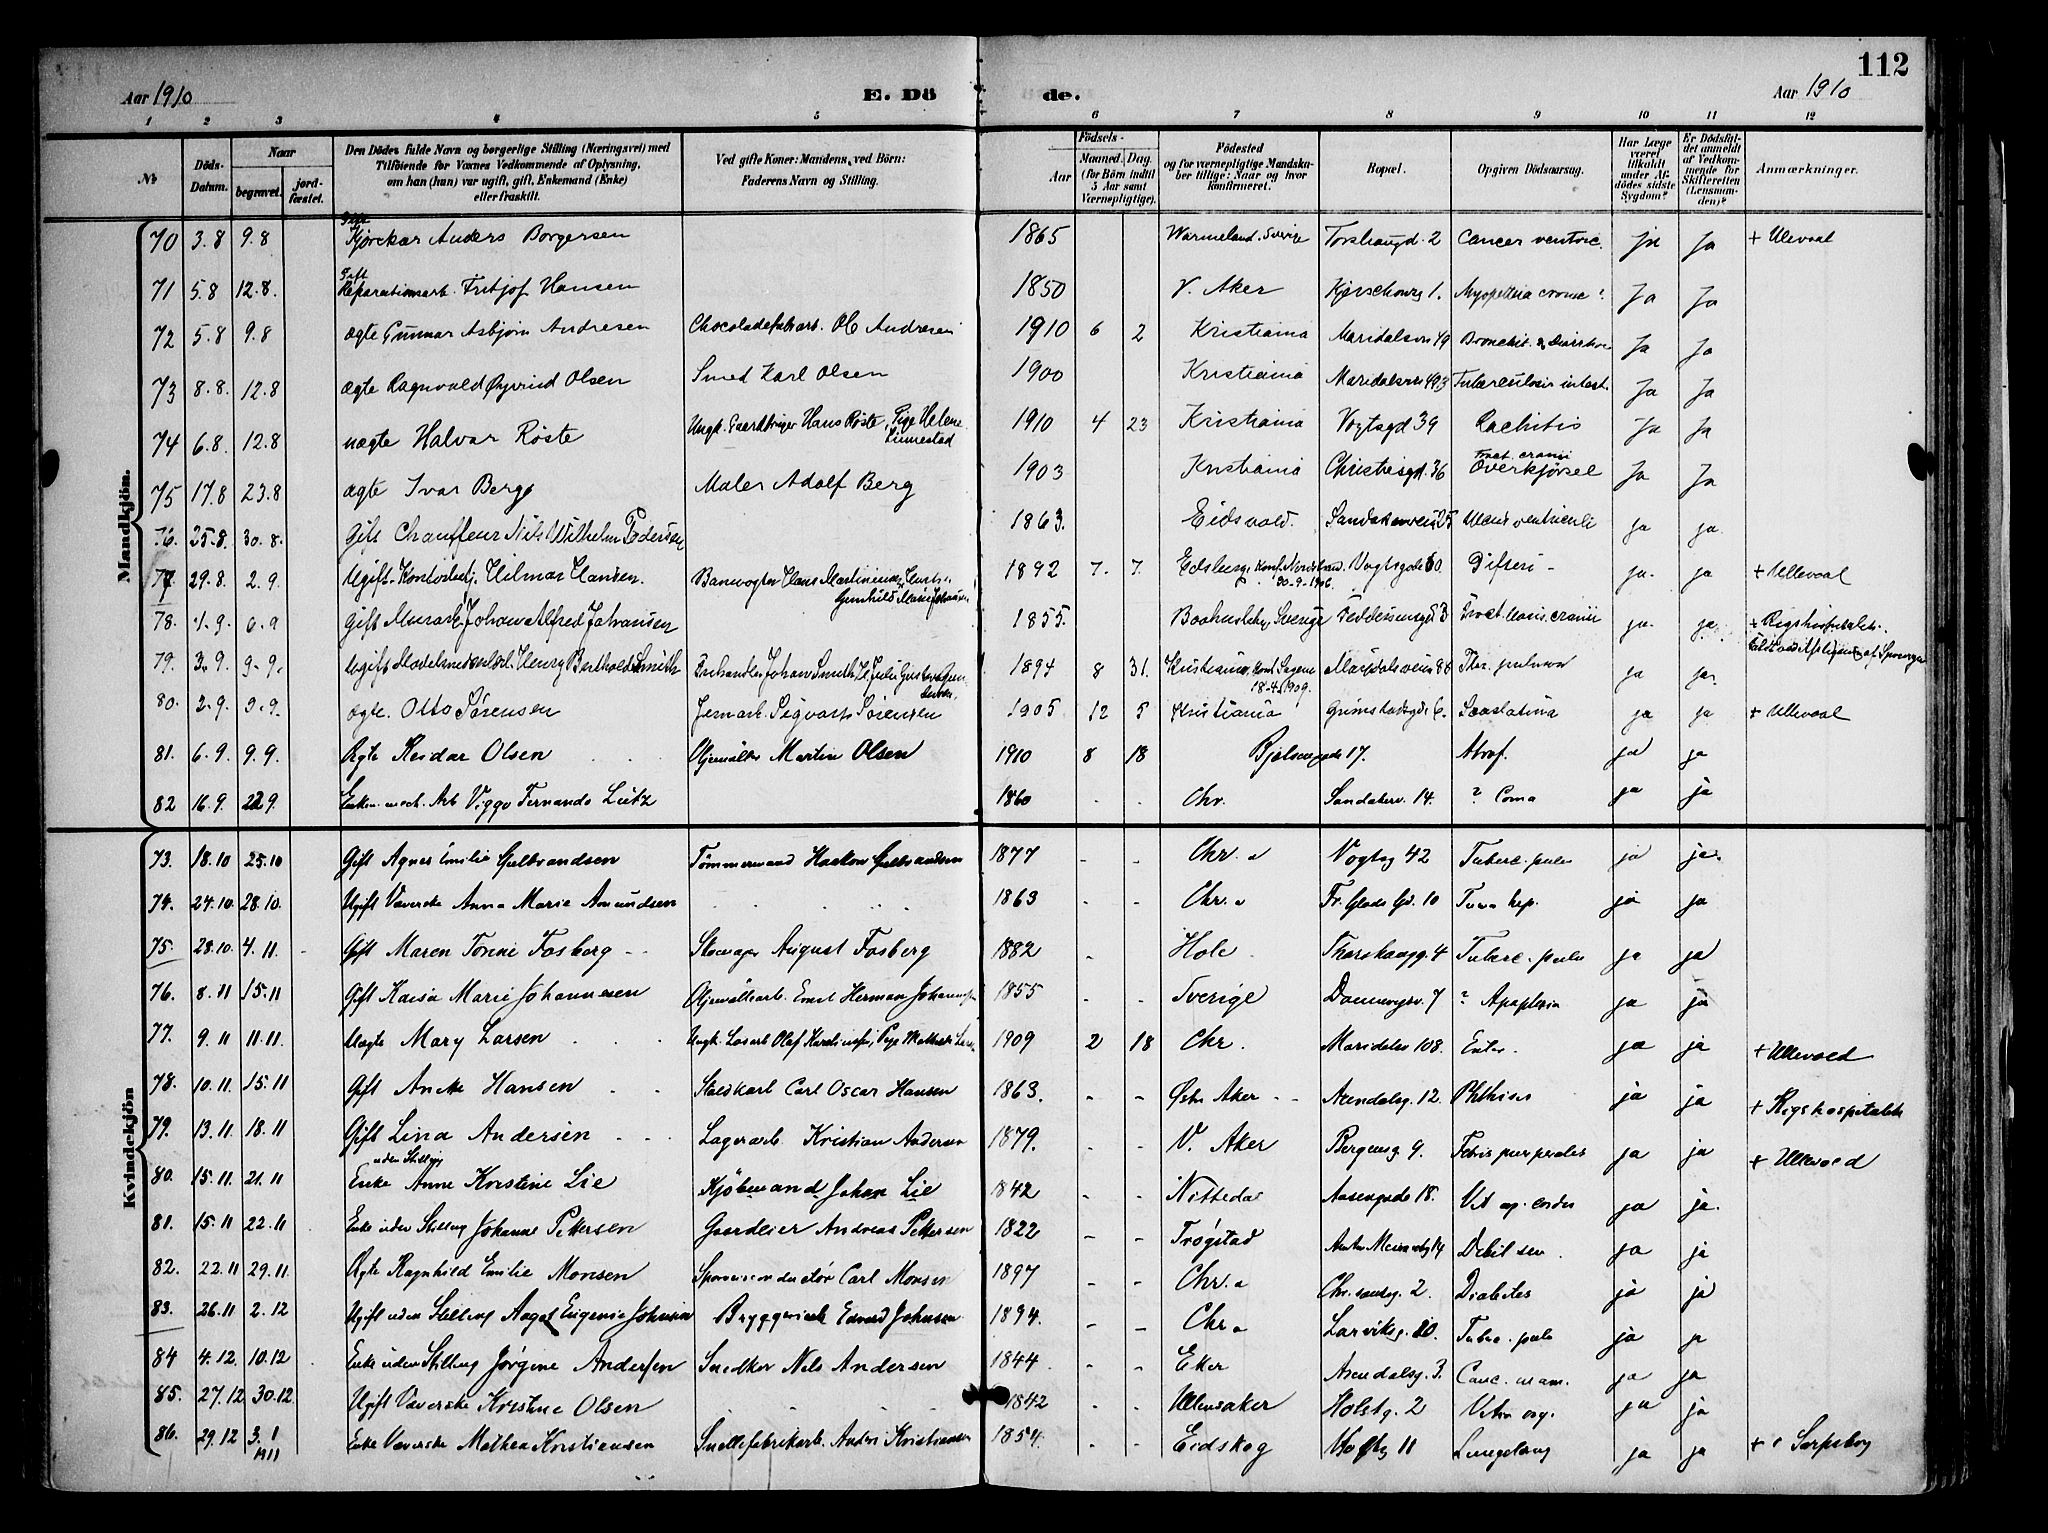 112
Aar 1910 E. Dö de. Aar 1910
1 2 3 4 5 6 7 8 9 10 11 12
No Döds-Datum. Naar begravet. jordfæstet. Den Dödes fulde Navn og borgerlige Stilling (Næringsvei) med Tilföiende for Voxnes Vedkommende af Oplysning, om han (hun) var ugift, gift, Enkemand (Enke) eller fraskilt. Ved gifte Koner: Mandens, ved Börn: Faderens Navn og Stilling. Födsels- Aar Maaned. Dag. (for Börn indtil 5 Aar samt Værnepligtige). Födested og for værnepligtige Mandskaber tillige: Naar og hvor konfirmeret. Bopæl. Opgiven Dödsaarsag. Har Læge været tilkaldt under Afdödes sidste Sygdom? Er Dödsfaldet anmeldt af Vedkommende for Skifteretten (Lensmanden)? Anmærkninger.
Mandkjön.
70 3.8 9.8 Gift Kjørekar Anders Borgersen 1865 Warmeland. Sverige Torshaugd. 2 Cancer ventric. ja Ja + Ulevaal
71 5.8 12.8. Gift Reparationsarb. Fritjof Hansen 1850 V. Aker 1. Ja Ja
72 5.8 9.8 ægte Gunnar Asbjørn Andresen Chocoladefabarb. Ol Andresen 1910 6 2 Kristiania Maridalsvn 49 Bronchit. & Diarrhoe Ja Ja
73 8.8. 12.8 ægte Ragnvald Øivind Olsen Smed Karl Olsen 1900 Kristiania Maridalsvn 493 Tuberculosis intest. Ja Ja
74 6.8. 12.8 uægte Halvar Røste Ungk. Hans Røste, Pige Helene Linnestad 1910 4 23 Kristiania Vogtsgd 39 Rachitis Ja Ja
75 17.8 23.8 ægte Ivar Berg Maler Adolf Berg 1903 Kristiania Christiesgd. 36 Fract. cranii Overkjørsel Ja Ja
76. 25.8. 30.8. Gift Chauffeur Nils Wilhelm Pedersen 1863. Eidsvold. Sandakerveien 25 Ulcus ventriculi ja ja.
77. 29.8. 2.9. Ugift Kontorbetj. Hilmar Hansen. Banevogter Hans Martinius 1892 7. 7. Edsberg, Konf. Nordstrand 30-9-1906. Vogtsgade 60. Difteri - ja. ja + Ullevaal
78. 1.9. 6.9 Gift Murarb. Johan Alfred Johansen 1855. Bohuslehn, Sverige Fract. cranii ja. ja. + Rigshospitalet.
79. 3.9. 9.9. Ugift Henry Berthold Smith Johan Smith 1894 8 31. Kristiania, Konf. Sagene 18-4-1909. Maridalsveien ja ja.
80. 2.9. 9.9. ægte. Otto Sørensen Jernarb. Sigvart Sørensen 1905 12 5 Kristiania Grimstadgade 6. Scarlatina ja ja + Ullevaal
81. 6.9. 9.9. Ægte Reidar Olsen Oljemøller Martin Olsen 1910 8 18 Bjølsengade 17. Atrof. ja ja
82 16.9. 22.9. Enkem. Arb. Viggo Fernando Lütz 1860 Chr. Sandakerv. 14. ? Coma ja ja
Kvindekjön
73. 18.10 25.10 Gift Agnes Emilie Gulbrandsen Tømmermand Haakon Gulbrandsen 1877 - - Chr.a Vogtsg 42 Tuberc. pulm ja ja.
74. 24.10 28.10. Ugift Væverske Anna Marie Amundsen 1863 - - Chr.a Fr. Glads Gd. 10 hep. ja ja
75. 28.10 4.11. Gift Maren Tonne Fosberg August Fosberg 1882 - Hole Thorshaugg. 4 Tuberc. pulm ja ja
76. 8.11 15.11 Gift Kaisa Marie Johannesen Oljemøllearb. Ernst Herman Johannesen 1855 - - Sverige 7 ? Apoplexia ja ja
77. 9.11 11.11. Uægte Mary Larsen Ungk. Løsarb Olaf 1909 2 18 Chr. Maridalsv 108. Enter. ja ja + Ullevold
78. 10.11. 15.11 Gift Anette Hansen Staldkarl Carl Oscar Hansen 1863. - - Østr Aker Arendalsg. 12. Phthisis ja ja + Rigshospitalet
79. 13.11 18.11 Gift Lina Andersen Lagerarb. Kristian Andersen 1879. V. Aker Bergensg 9. Febris puerperalis ja ja + Ullevold
80. 15.11 21.11 uden Stilling Enke Anne Kristine Lie Kjøbmand Johan Lie 1842 - - Nittedal Aasengade 18. Vit. org. cordis ja ja.
81. 15.11 22.11 Enke uden Stilling Johanne Pettersen Gaardeier Andreas Pettersen 1822 - - Trøgstad 14 Debil sen. ja ja
82. 22.11 29.11. Ægte Ragnhild Emilie Monsen Sporvei Carl Monsen 1897 - - Chr.a Chr.sandsg. 2. Diabetes ja ja
83. 26.11 2.12 Ugift uden Stilling Aagot Eugenie Johnsen Bryggeriarb Edvard Johnsen 1894. - - Chr.a Larviksg. 20. Tuberc. pulm ja ja
84 4.12. 10.12 Enke uden Stilling Jørgine Andersen Snedker Nils Andersen 1844 - - Eker Arendalsg. 3. Canc. mam. ja ja
85. 27.12 30.12 Ugift Væverske Kristine Olsen 1842 - - Ullensaker Holstg. 2 Vitium org. ja ja
86. 29.12 3.1 1911 Enke Væverske Mathea Kristiansen Snellefabrikarb. Anders Kristiansen 1854. - - Eidskog Holstg 11 ja ja + i Sarpsborg